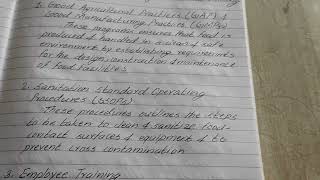 1. Good Agricultural Practices (GAP) &
Good Manufacturing Practices (GMPs)
These programs ensures that food is
produced & handled in a clean & safe
environment by establishing requirements
for the design, construction & maintenance
of food facilities
2. Sanitation Standard Operating
Procedures (SSOPs)
These procedures outlines the steps
to be taken to clean & sanitize food-
contact surfaces & equipment & to
prevent cross contamination
3. Employee Training